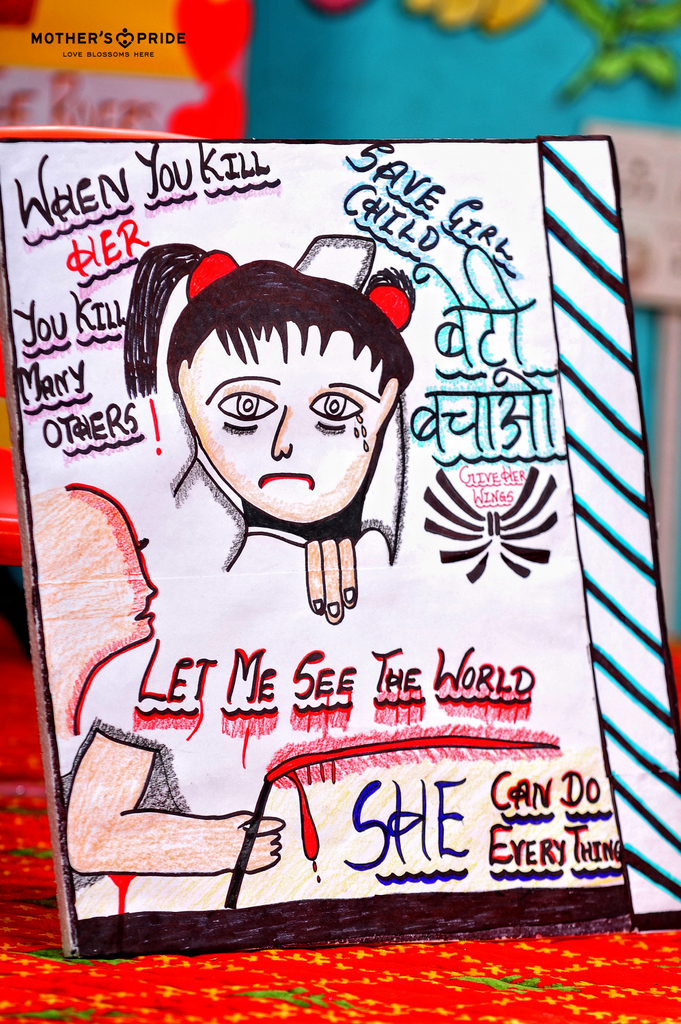 MOTHER'S PRIDE
LOVE BLOSSOMS HERE
RIVERS
WHEN YOU KILL
HER
YOU KILL
MANY
OTHERS!
SAVE GIRL
CHILD
बेटी
बचाओ
GIVE HER
WINGS
LET ME SEE THE WORLD
SHE CAN DO
EVERYTHING